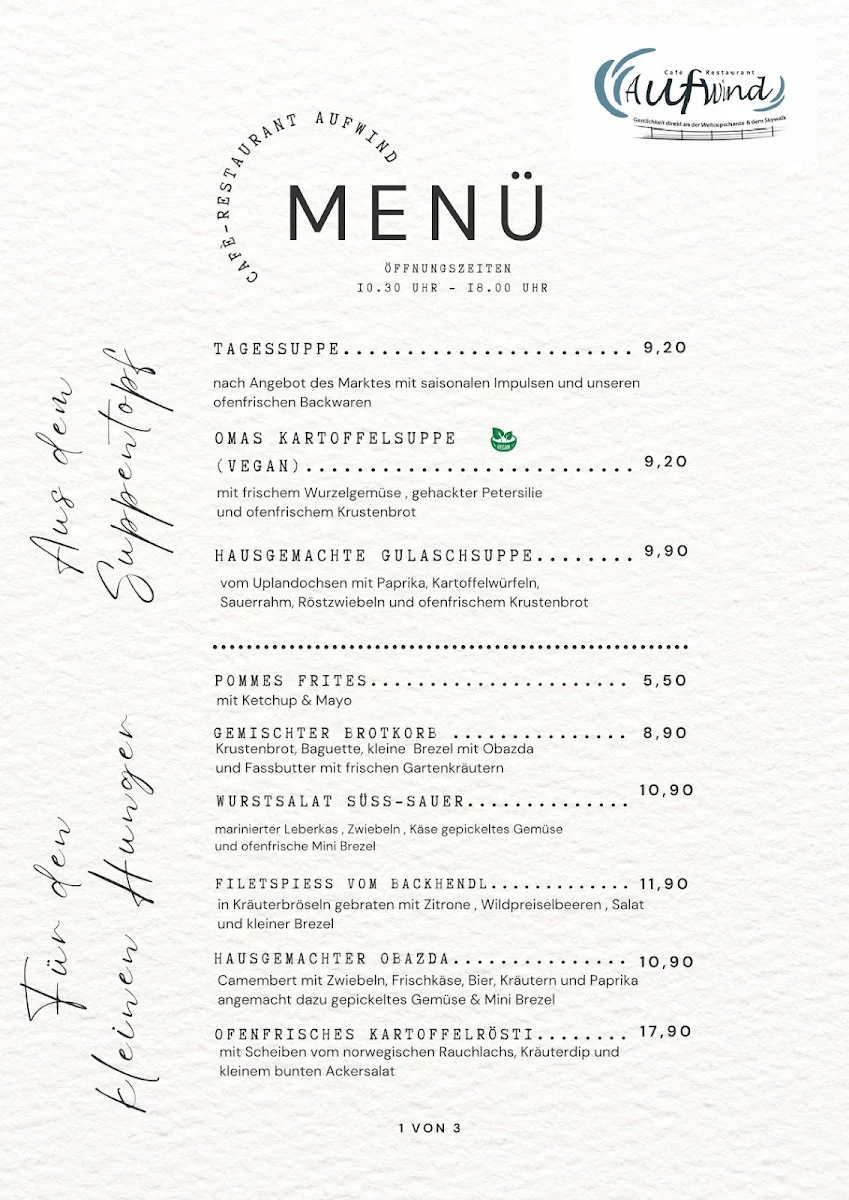 Café Restaurant
Aufwind
Gastlichkeit direkt an der Weltcupschanze & dem Skywalk
CAFÈ-RESTAURANT AUFWIND
MENÜ
ÖFFNUNGSZEITEN
10.30 UHR - 18.00 UHR
Aus dem
Suppentopf
TAGESSUPPE............................. 9,20
nach Angebot des Marktes mit saisonalen Impulsen und unseren
ofenfrischen Backwaren
OMAS KARTOFFELSUPPE VEGAN
(VEGAN)................................. 9,20
mit frischem Wurzelgemüse , gehackter Petersilie
und ofenfrischem Krustenbrot
HAUSGEMACHTE GULASCHSUPPE........ 9,90
vom Uplandochsen mit Paprika, Kartoffelwürfeln,
Sauerrahm, Röstzwiebeln und ofenfrischem Krustenbrot
Für den
kleinen Hunger
POMMES FRITES...................... 5,50
mit Ketchup & Mayo
GEMISCHTER BROTKORB ............... 8,90
Krustenbrot, Baguette, kleine Brezel mit Obazda
und Fassbutter mit frischen Gartenkräutern
WURSTSALAT SÜSS-SAUER.............. 10,90
marinierter Leberkas , Zwiebeln , Käse gepickeltes Gemüse
und ofenfrische Mini Brezel
FILETSPIESS VOM BACKHENDL............. 11,90
in Kräuterbröseln gebraten mit Zitrone , Wildpreiselbeeren , Salat
und kleiner Brezel
HAUSGEMACHTER OBAZDA............... 10,90
Camembert mit Zwiebeln, Frischkäse, Bier, Kräutern und Paprika
angemacht dazu gepickeltes Gemüse & Mini Brezel
OFENFRISCHES KARTOFFELRÖSTI........ 17,90
mit Scheiben vom norwegischen Rauchlachs, Kräuterdip und
kleinem bunten Ackersalat
1 VON 3